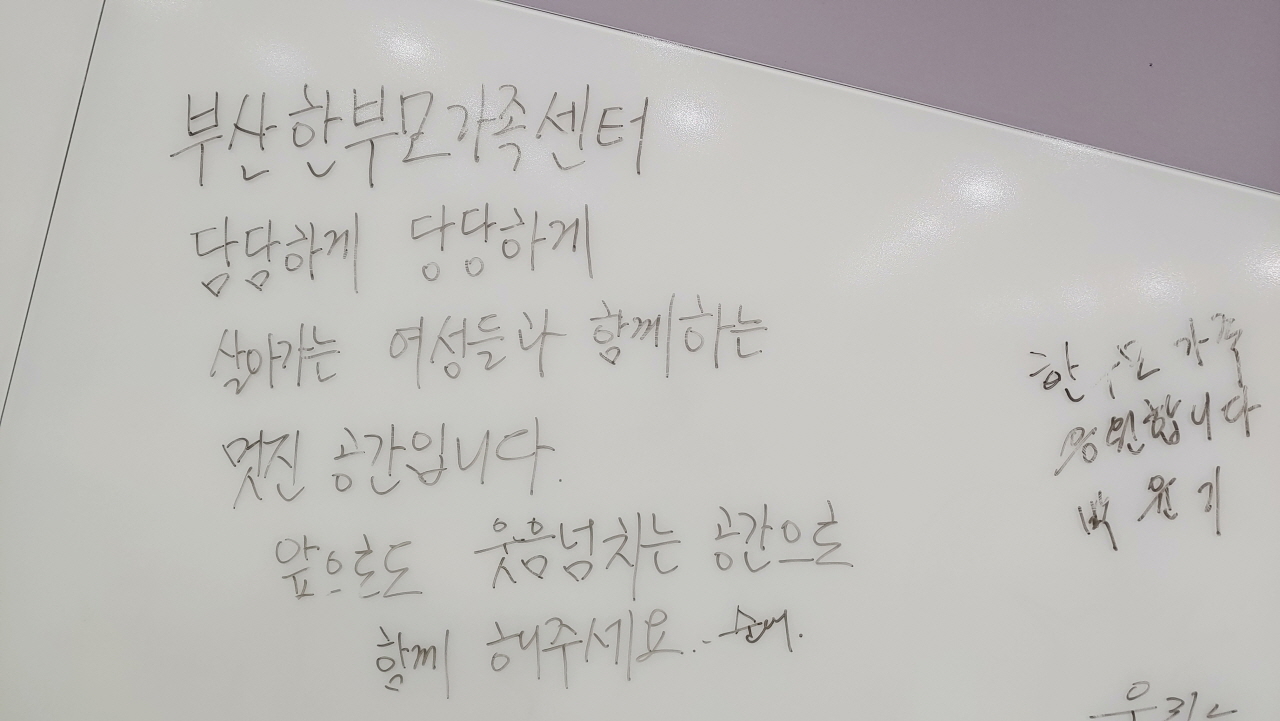 부산한부모가족센터
담담하게 당당하게
살아가는 여성들과 함께하는
멋진 공간입니다.
앞으로도 웃음넘치는 공간으로
함께 해주세요..
한부모 가족
응원합니다
우리는